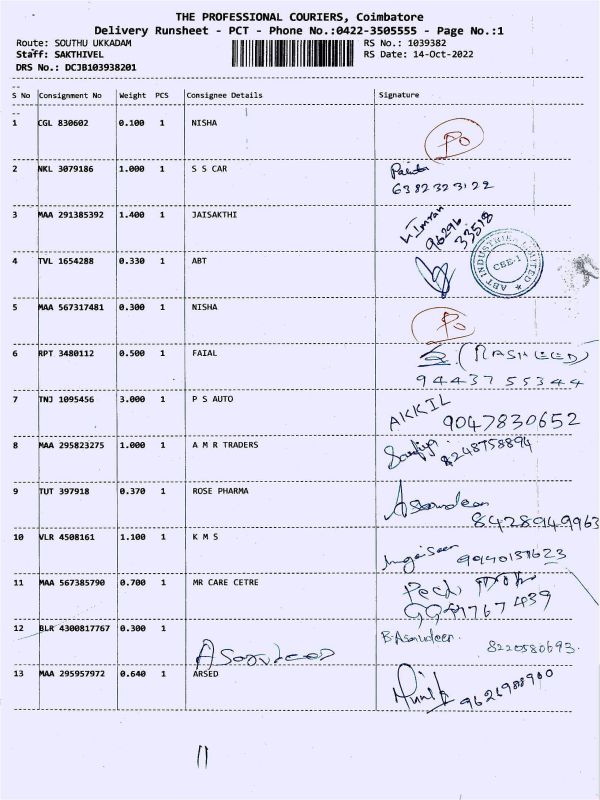 THE PROFESSIONAL COURIERS, Coimbatore
Delivery Runsheet - PCT - Phone No.:0422-3505555 - Page No.:1
Route: SOUTHU UKKADAM RS No.: 1039382
Staff: SAKTHIVEL RS Date: 14-Oct-2022
DRS No.: DCJB103938201
S No Consignment No Weight PCS Consignee Details Signature
1 CGL 830602 0.100 1 NISHA
2 NKL 3079186 1.000 1 S S CAR
6382323122
3 MAA 291385392 1.400 1 JAISAKTHI Imran
96296
33518
4 TVL 1654288 0.330 1 ABT
ABT INDUSTRIES LIMITED
CBE-1
5 MAA 567317481 0.300 1 NISHA
6 RPT 3480112 0.500 1 FAIAL (RASHEED)
94437 55344
7 TNJ 1095456 3.000 1 P S AUTO AKKIL
9047830652
8 MAA 295823275 1.000 1 A M R TRADERS
8248758894
9 TUT 397918 0.370 1 ROSE PHARMA Asarudeen
8428949963
10 VLR 4508161 1.100 1 K M S
11 MAA 567385790 0.700 1 MR CARE CETRE
12 BLR 4300817767 0.300 1 B.Asarudeen.
8220580693.
Asarudeen
13 MAA 295957972 0.640 1 ARSED
11